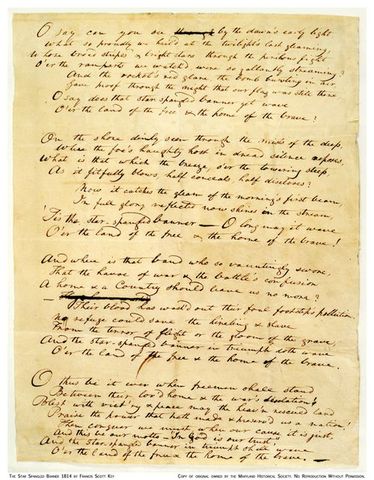 O say can you see through by the dawn's early light
What so proudly we hail'd at the twilight's last gleaming,
Whose broad stripes & bright stars through the perilous fight
O'er the ramparts we watch'd, were so gallantly streaming?
And the rocket's red glare, the bomb bursting in air,
Gave proof through the night that our flag was still there
O say does that star-spangled banner yet wave
O'er the land of the free & the home of the brave?
On the shore dimly seen through the mists of the deep,
Where the foe's haughty host in dread silence reposes,
What is that which the breeze, o'er the towering steep,
As it fitfully blows, half conceals, half discloses?
Now it catches the gleam of the morning's first beam,
In full glory reflected now shines in the stream,
'Tis the star-spangled banner — O long may it wave
O'er the land of the free & the home of the brave!
And where is that band who so vauntingly swore,
That the havoc of war & the battle's confusion
A home & a Country should leave us no more?
Their blood has wash'd out their foul footstep's pollution.
No refuge could save the hireling & slave
From the terror of flight or the gloom of the grave,
And the star-spangled banner in triumph doth wave
O'er the land of the free & the home of the brave.
O thus be it ever when freemen shall stand
Between their lov'd home & the war's desolation!
Blest with vict'ry & peace may the heav'n rescued land
Praise the power that hath made & preserv'd us a nation!
Then conquer we must, when our cause it is just,
And this be our motto — "In God is our trust,"
And the star-spangled banner in triumph shall wave
O'er the land of the free & the home of the brave. —
The Star Spangled Banner 1814 by Francis Scott Key
Copy of original owned by the Maryland Historical Society. No Reproduction Without Permission.